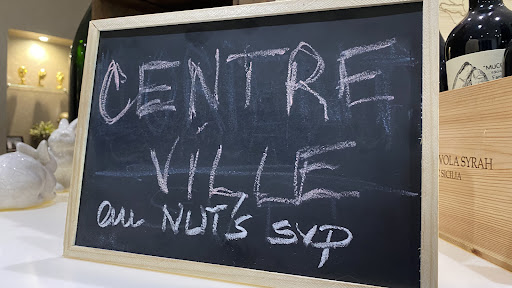 CENTRE
VILLE
au NUTS SVP
MUC
VOLA SYRAH
SICILIA